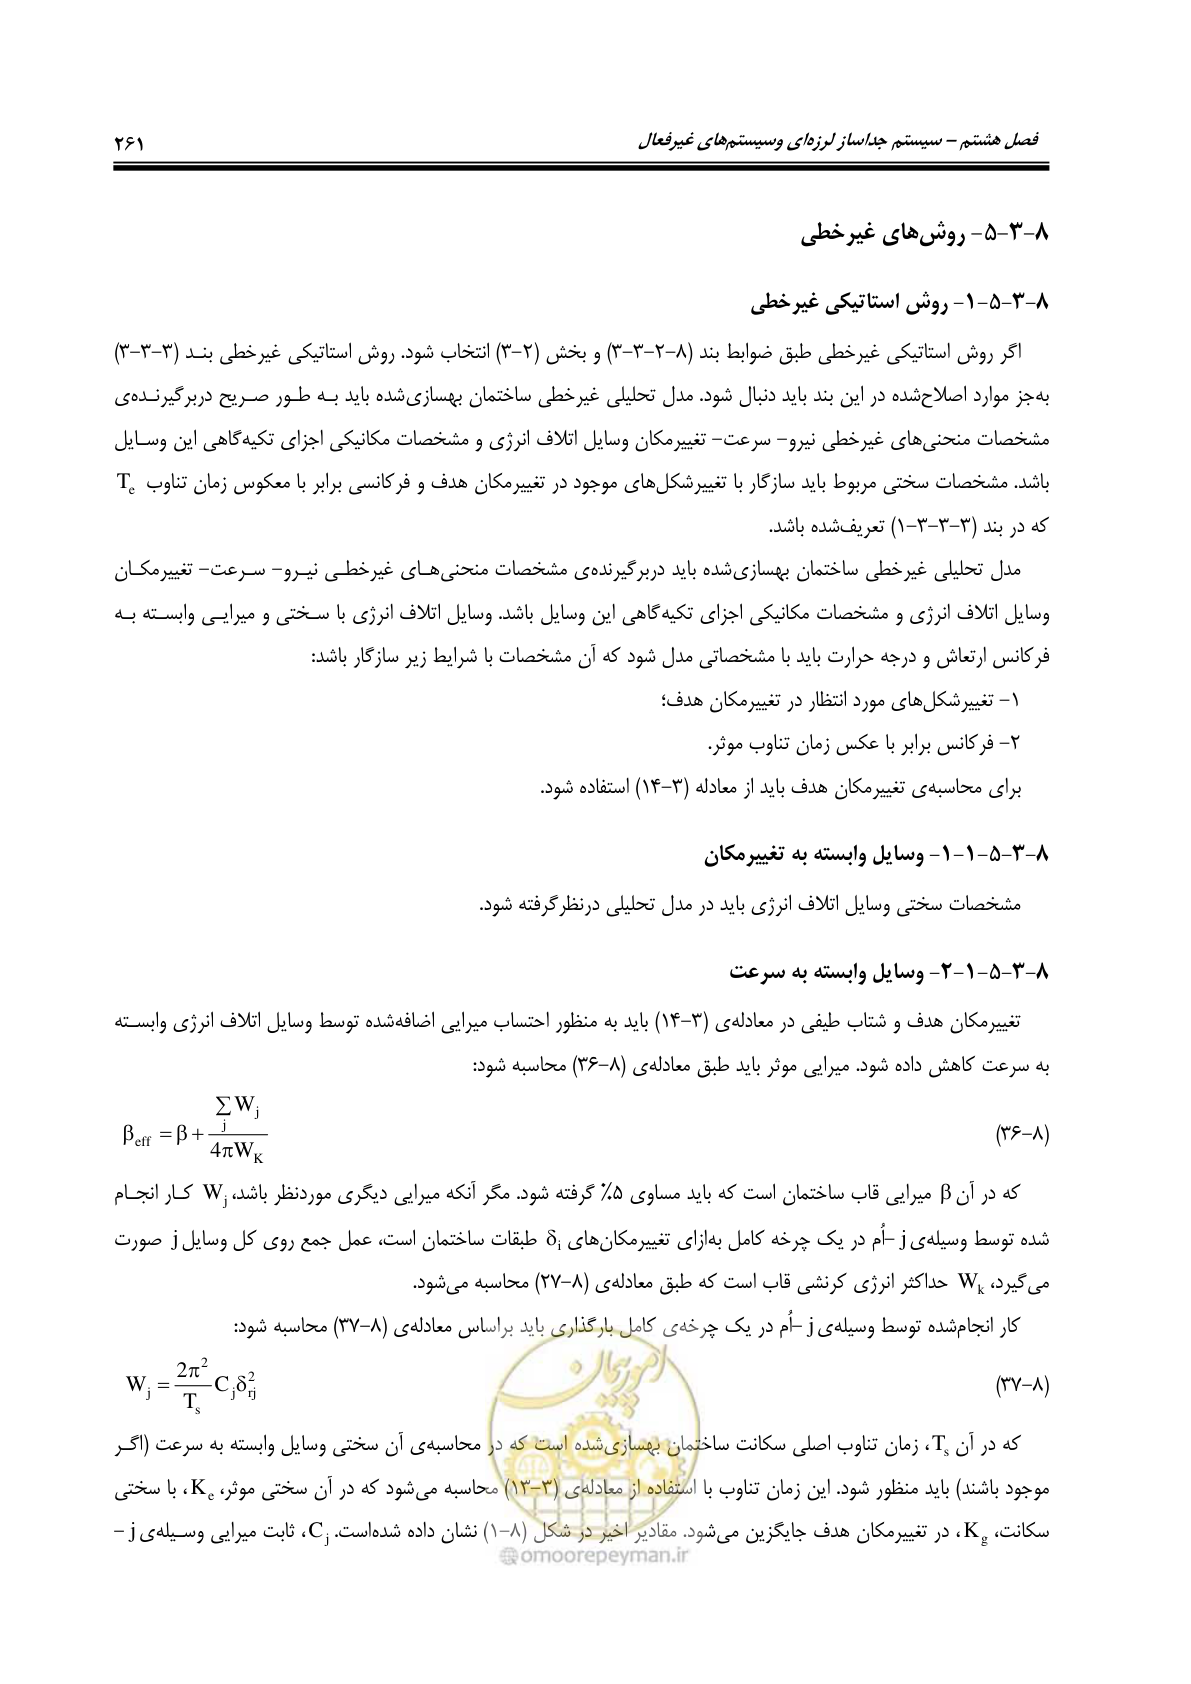 فصل هشتم – سیستم جداساز لرزه‌ای وسیستم‌های غیرفعال ۲۶۱
۸-۳-۵- روش‌های غیرخطی
۸-۳-۵-۱- روش استاتیکی غیرخطی
اگر روش استاتیکی غیرخطی طبق ضوابط بند (۸-۲-۳-۳) و بخش (۲-۳) انتخاب شود. روش استاتیکی غیرخطی بنـد (۳-۳-۳)
به‌جز موارد اصلاح‌شده در این بند باید دنبال شود. مدل تحلیلی غیرخطی ساختمان بهسازی‌شده باید بـه طـور صـریح دربرگیرنـده‌ی
مشخصات منحنی‌های غیرخطی نیرو- سرعت- تغییرمکان وسایل اتلاف انرژی و مشخصات مکانیکی اجزای تکیه‌گاهی این وسـایل
باشد. مشخصات سختی مربوط باید سازگار با تغییرشکل‌های موجود در تغییرمکان هدف و فرکانسی برابر با معکوس زمان تناوب Te
که در بند (۳-۳-۳-۱) تعریف‌شده باشد.
مدل تحلیلی غیرخطی ساختمان بهسازی‌شده باید دربرگیرنده‌ی مشخصات منحنی‌هـای غیرخطـی نیـرو- سـرعت- تغییرمکـان
وسایل اتلاف انرژی و مشخصات مکانیکی اجزای تکیه‌گاهی این وسایل باشد. وسایل اتلاف انرژی با سـختی و میرایـی وابسـته بـه
فرکانس ارتعاش و درجه حرارت باید با مشخصاتی مدل شود که آن مشخصات با شرایط زیر سازگار باشد:
۱- تغییرشکل‌های مورد انتظار در تغییرمکان هدف؛
۲- فرکانس برابر با عکس زمان تناوب موثر.
برای محاسبه‌ی تغییرمکان هدف باید از معادله (۳-۱۴) استفاده شود.
۸-۳-۵-۱-۱- وسایل وابسته به تغییرمکان
مشخصات سختی وسایل اتلاف انرژی باید در مدل تحلیلی درنظرگرفته شود.
۸-۳-۵-۱-۲- وسایل وابسته به سرعت
تغییرمکان هدف و شتاب طیفی در معادله‌ی (۳-۱۴) باید به منظور احتساب میرایی اضافه‌شده توسط وسایل اتلاف انرژی وابسـته
به سرعت کاهش داده شود. میرایی موثر باید طبق معادله‌ی (۸-۳۶) محاسبه شود:
(۸-۳۶) β_eff = β + (∑_j W_j)/(4πW_K)
که در آن β میرایی قاب ساختمان است که باید مساوی ۵٪ گرفته شود. مگر آنکه میرایی دیگری موردنظر باشد، W_j کـار انجـام
شده توسط وسیله‌ی j –اُم در یک چرخه کامل به‌ازای تغییرمکان‌های δ_i طبقات ساختمان است، عمل جمع روی کل وسایل j صورت
می‌گیرد، W_k حداکثر انرژی کرنشی قاب است که طبق معادله‌ی (۸-۲۷) محاسبه می‌شود.
کار انجام‌شده توسط وسیله‌ی j –اُم در یک چرخه‌ی کامل بارگذاری باید براساس معادله‌ی (۸-۳۷) محاسبه شود:
(۸-۳۷) W_j = (2π²/T_s) C_j δ²_rj
که در آن T_s، زمان تناوب اصلی سکانت ساختمان بهسازی‌شده است که در محاسبه‌ی آن سختی وسایل وابسته به سرعت (اگـر
موجود باشند) باید منظور شود. این زمان تناوب با استفاده از معادله‌ی (۳-۱۳) محاسبه می‌شود که در آن سختی موثر، K_e، با سختی
سکانت، K_g، در تغییرمکان هدف جایگزین می‌شود. مقادیر اخیر در شکل (۸-۱) نشان داده شده‌است. C_j، ثابت میرایی وسـیله‌ی j –
امور پیمان
@omoorepeyman.ir